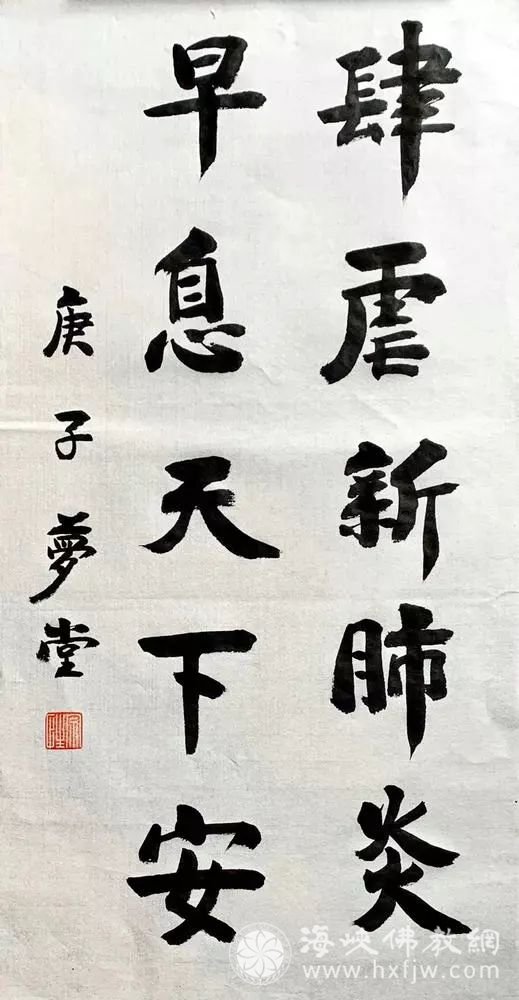 肆虐新肺炎
早息天下安
庚子夢堂
海峡佛教網
www.hxfjw.com